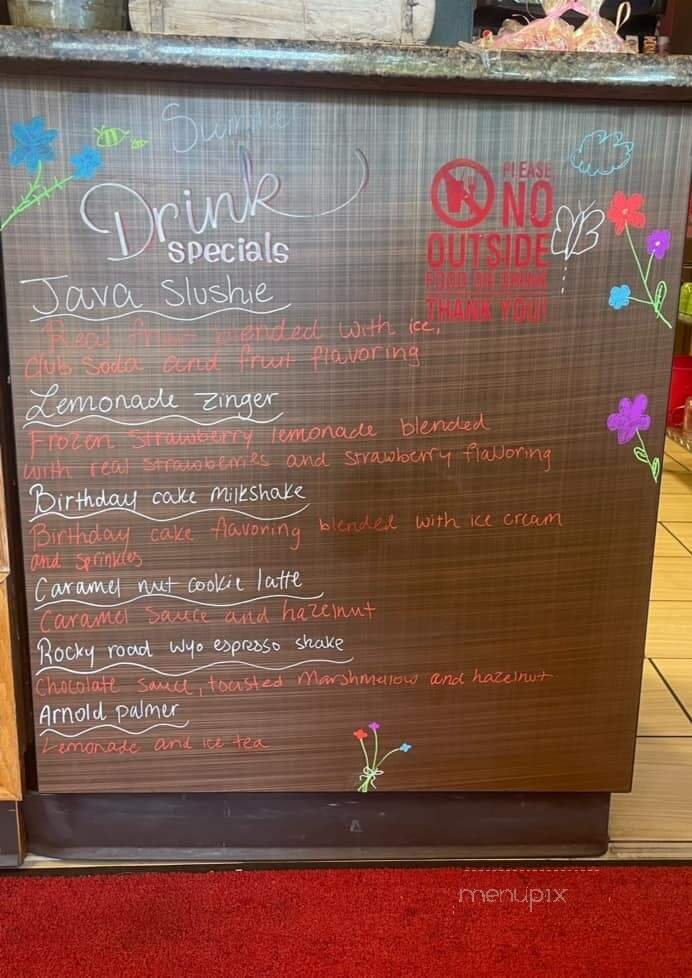 Summer
Drink
specials
PLEASE
NO
OUTSIDE
FOOD OR DRINK
THANK YOU!
Java Slushie
Real blended with ice,
Club Soda and fruit flavoring
Lemonade Zinger
Frozen Strawberry lemonade blended
with real strawberries and strawberry flavoring
Birthday cake milkshake
Birthday cake flavoring blended with ice cream
and sprinkles
Caramel nut cookie latte
Caramel sauce and hazelnut
Rocky road wyo espresso shake
Chocolate sauce, toasted marshmellow and hazelnut
Arnold palmer
Lemonade and ice tea
menupix